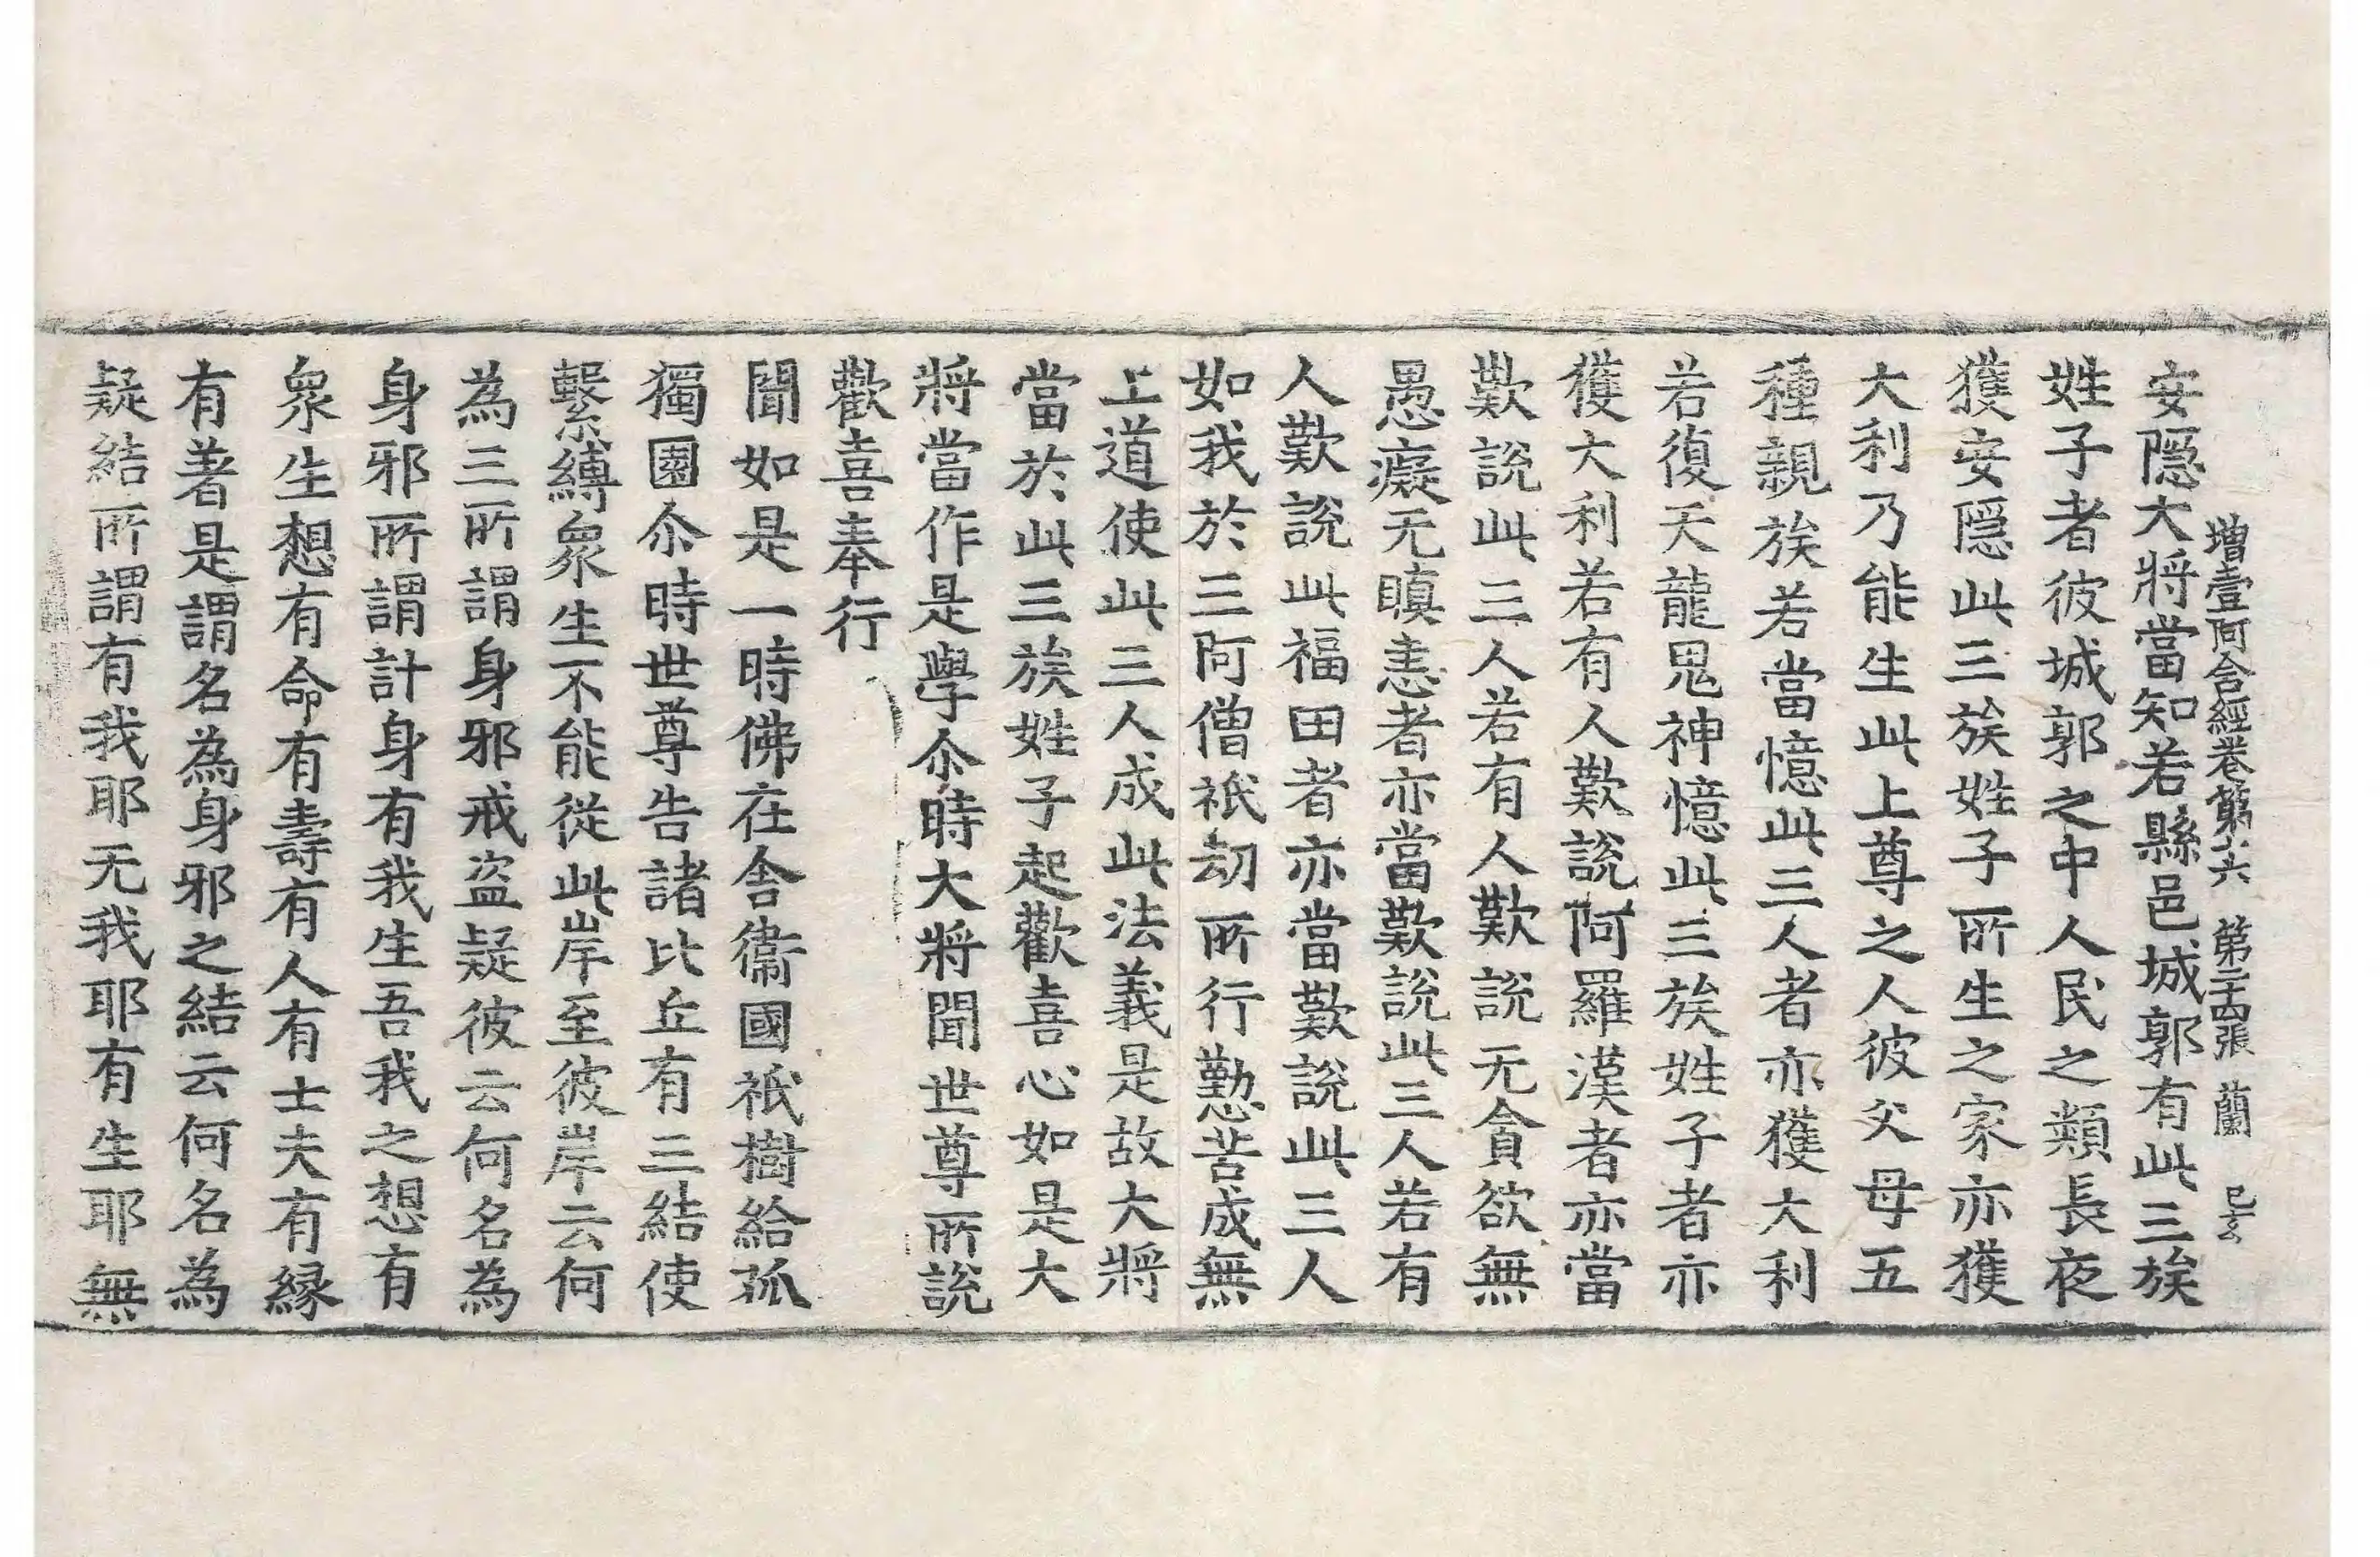 增壹阿含經卷第十六 第二十四張 蘭
安隱大將當知若縣邑城郭有此三族
姓子者彼城郭之中人民之類長夜
獲安隱此三族姓子所生之家亦獲
大利乃能生此上尊之人彼父母五
種親族若當憶此三人者亦獲大利
若復天龍鬼神憶此三族姓子者亦
獲大利若有人歎說阿羅漢者亦當
歎說此三人若有人歎說无貪欲無
愚癡无瞋恚者亦當歎說此三人若有
人歎說此福田者亦當歎說此三人
如我於三阿僧祇劫所行懃苦成無
上道使此三人成此法義是故大將
當於此三族姓子起歡喜心如是大
將當作是學尒時大將聞世尊所說
歡喜奉行
聞如是一時佛在舍衞國祇樹給孤
獨園尒時世尊告諸比丘有三結使
繫縛衆生不能從此岸至彼岸云何
為三所謂身邪戒盜疑彼云何名為
身邪所謂計身有我生吾我之想有
衆生想有命有壽有人有士夫有縁
有著是謂名為身邪之結云何名為
疑結所謂有我耶无我耶有生耶無